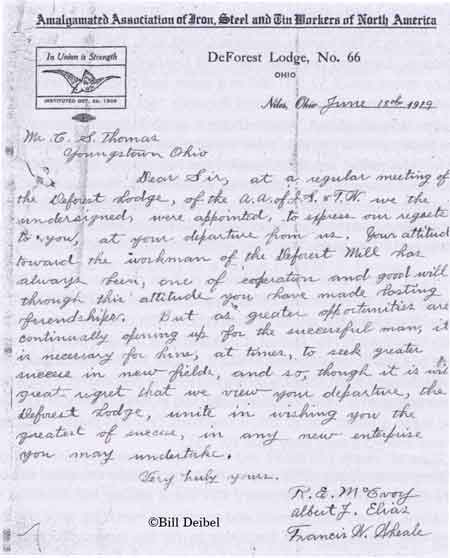 Amalgamated Association of Iron, Steel and Tin Workers of North America
In Union is Strength
DeForest Lodge, No. 66
OHIO
Niles, Ohio June 18th 1919
Mr. C. S. Thomas
Youngstown Ohio
Dear Sir, at a regular meeting of
the Deforest Lodge, of the A.A. of I. S. & T.W. we the
undersigned, were appointed, to express our regrets
to you, at your departure from us. Your attitud
toward the workman of the Deforest Mill has
always been, one of cooperation and good will
through this attitude you have made lasting
friendships. But as greater opportunities are
continually opening up for the successful man, it
is necessary for him, at times, to seek greater
success in new fields, and so, though it is with
great regret that we view your departure, the
Deforest Lodge, unite in wishing you the
greatest of success, in any new enterprise
you may undertake.
Very truly yours.
R. E. McEvoy
Albert J. Elias
Francis W. Sheale
©Bill Deibel